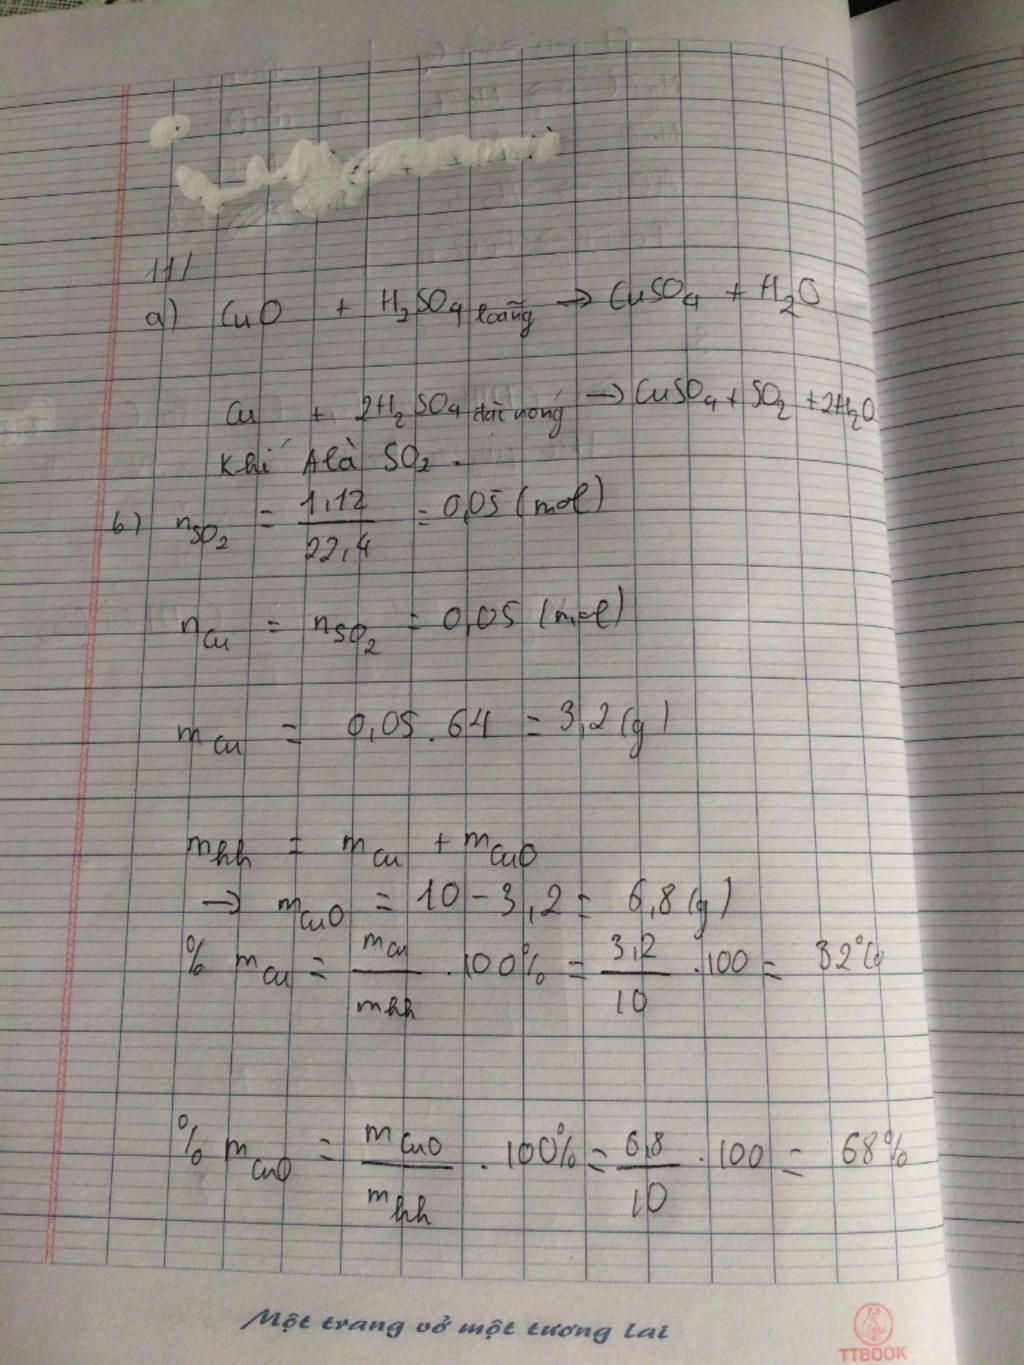 11/
a) CuO + H2SO4 loãng → CuSO4 + H2O
Cu + 2H2SO4 đặc nóng → CuSO4 + SO2 + 2H2O
Khí A là SO2.
b) nSO2 = 1,12 / 22,4 = 0,05 (mol)
nCu = nSO2 = 0,05 (mol)
mCu = 0,05 . 64 = 3,2 (g)
mhh = mCu + mCuO
→ mCuO = 10 - 3,2 = 6,8 (g)
% mCu = mCu / mhh . 100% = 3,2 / 10 . 100 = 32%
% mCuO = mCuO / mhh . 100% = 6,8 / 10 . 100 = 68%
Một trang vở một tương lai
TTBOOK